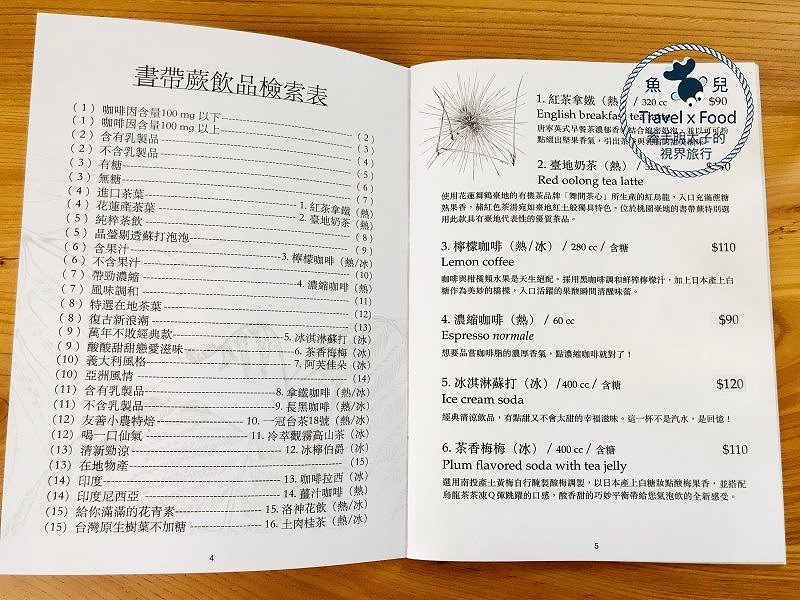 書帶蕨飲品檢索表
(1) 咖啡因含量100 mg 以下 (2)
(1) 咖啡因含量100 mg 以上 (3)
(2) 含有乳製品 (4)
(2) 不含乳製品 (5)
(3) 有糖 (6)
(3) 無糖 (7)
(4) 進口茶葉 1. 紅茶拿鐵 (熱)
(4) 花蓮產茶葉 2. 臺地奶茶 (熱)
(5) 純粹茶飲 (8)
(5) 晶瑩剔透蘇打泡泡 (9)
(6) 含果汁 3. 檸檬咖啡 (熱/冰)
(6) 不含果汁 (10)
(7) 帶勁濃縮 4. 濃縮咖啡 (熱)
(7) 風味調和 (11)
(8) 特選在地茶葉 (12)
(8) 復古新浪潮 (13)
(9) 萬年不敗經典款 5. 冰淇淋蘇打 (冰)
(9) 酸酸甜甜戀愛滋味 6. 茶香梅梅 (冰)
(10) 義大利風格 7. 阿芙佳朵 (冰)
(10) 亞洲風情 (14)
(11) 含有乳製品 8. 拿鐵咖啡 (熱/冰)
(11) 不含乳製品 9. 長黑咖啡 (熱/冰)
(12) 友善小農特焙 10. 一冠台茶18號 (熱/冰)
(12) 喝一口仙氣 11. 冷萃觀霧高山茶 (冰)
(13) 清新勁涼 12. 冰檸伯爵 (冰)
(13) 在地物產 (15)
(14) 印度 13. 咖啡拉西 (冰)
(14) 印度尼西亞 14. 薑汁咖啡 (熱)
(15) 給你滿滿的花青素 15. 洛神花飲 (熱/冰)
(15) 台灣原生樹葉不加糖 16. 土肉桂茶 (熱/冰)
4
1. 紅茶拿鐵 (熱) / 320 cc $90
English breakfast tea latte
唐寧英式早餐茶濃郁香 結合綿密奶泡，並以可可粉
點綴出堅果香氣，引出茶
2. 臺地奶茶 (熱)
Red oolong tea latte
使用花蓮舞鶴臺地的有機茶品牌「舞間茶心」所生產的紅烏龍，入口充滿蔗糖
熟果香，赫紅色茶湯宛如臺地紅土般獨具特色。位於桃園臺地的書帶蕨特別選
用此款具有臺地代表性的優質茶品。
3. 檸檬咖啡 (熱/冰) / 280 cc / 含糖 $110
Lemon coffee
咖啡與柑橘類水果是天生絕配。採用黑咖啡調和鮮榨檸檬汁，加上日本產上白
糖作為美妙的橋樑，入口活躍的果酸瞬間清醒味蕾。
4. 濃縮咖啡 (熱) / 60 cc $90
Espresso normale
想要品嘗咖啡脂的濃厚香氣，點濃縮咖啡就對了！
5. 冰淇淋蘇打 (冰) /400 cc / 含糖 $120
Ice cream soda
經典清涼飲品，有點甜又不會太甜的幸福滋味。這一杯不是汽水，是回憶！
6. 茶香梅梅 (冰) / 400 cc / 含糖 $110
Plum flavored soda with tea jelly
選用南投產土黃梅自行醃製酸梅調製，以日本產上白糖妝點酸梅果香，並搭配
烏龍茶茶凍Q彈跳躍的口感，酸香甜的巧妙平衡帶給您氣泡飲的全新感受。
5
魚 兒
Travel x Food
牽手明太子的
視界旅行